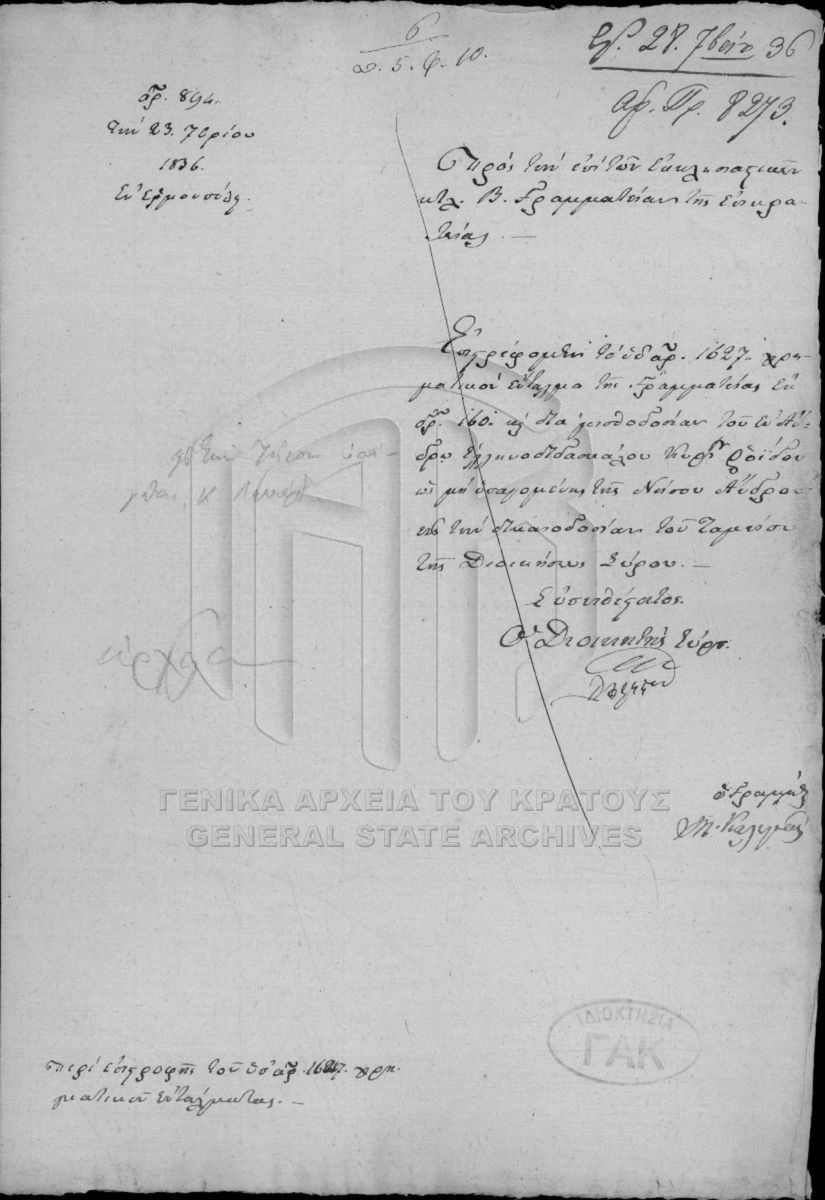 6
Δ. 5. φ. 10.
28. 7βρίου 36
Αρ. Πρ. 8273.
ἀρ. 894.
τὴν 23. 7βρίου
1836.
Ἐν Ἑρμουπόλει
Πρὸς τὴν ἐπὶ τῶν Ἐκκλησιαστικῶν
κτλ. Β. Γραμματείαν τῆς Ἐπικρα-
τείας. —
Ἐπιστρέφομεν τὸ ὑπ' ἀρ. 1627. χρη-
ματικὸν ἔνταλμα τῆς Γραμματείας
ἀρ. 160. διὰ μισθοδοσίαν τοῦ ἐν Ἄν-
δρῳ Ἑλληνοδιδασκάλου Κυρίου
ὡς μὴ ὑπαγομένης τῆς Νήσου Ἄνδρου
εἰς τὴν δικαιοδοσίαν τοῦ Ταμείου
τῆς Διοικήσεως Σύρου. —
Εὐπειθέστατος
Ὁ Διοικητὴς Σύρου
ὁ Γραμματεὺς
ἀρχεῖα
ΓΕΝΙΚΑ ΑΡΧΕΙΑ ΤΟΥ ΚΡΑΤΟΥΣ
GENERAL STATE ARCHIVES
ΙΔΙΟΚΤΗΣΙΑ
ΓΑΚ
Περὶ ἐπιστροφῆς τοῦ ὑπ' ἀρ. 1627. χρη-
ματικοῦ ἐντάλματος. —